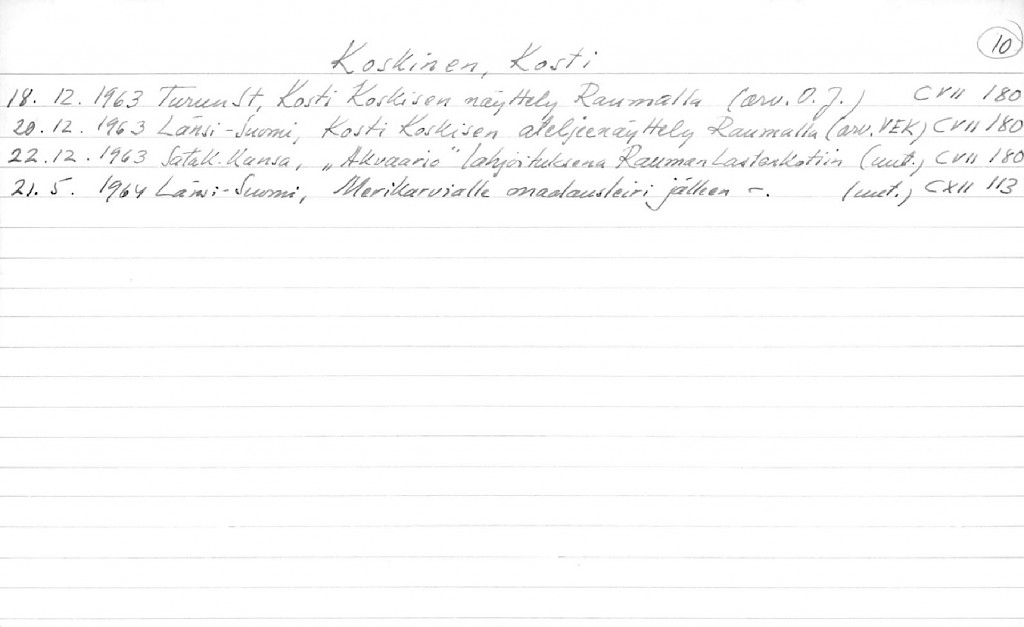 10
Koskinen, Kosti
18. 12. 1963 Turun St, Kosti Koskisen näyttely Raumalla (arv. O. J.) CVII 180
20. 12. 1963 Länsi-Suomi, Kosti Koskisen ateljeenäyttely Raumalla (arv. VEK) CVII 180
22. 12. 1963 Satak. Kansa, „Akvaario" lahjoituksena Rauman Lastenkotiin (uut.) CVII 180
21. 5. 1964 Länsi-Suomi, Merikarvialle maalausleiri jälleen -. (uut.) CXII 113